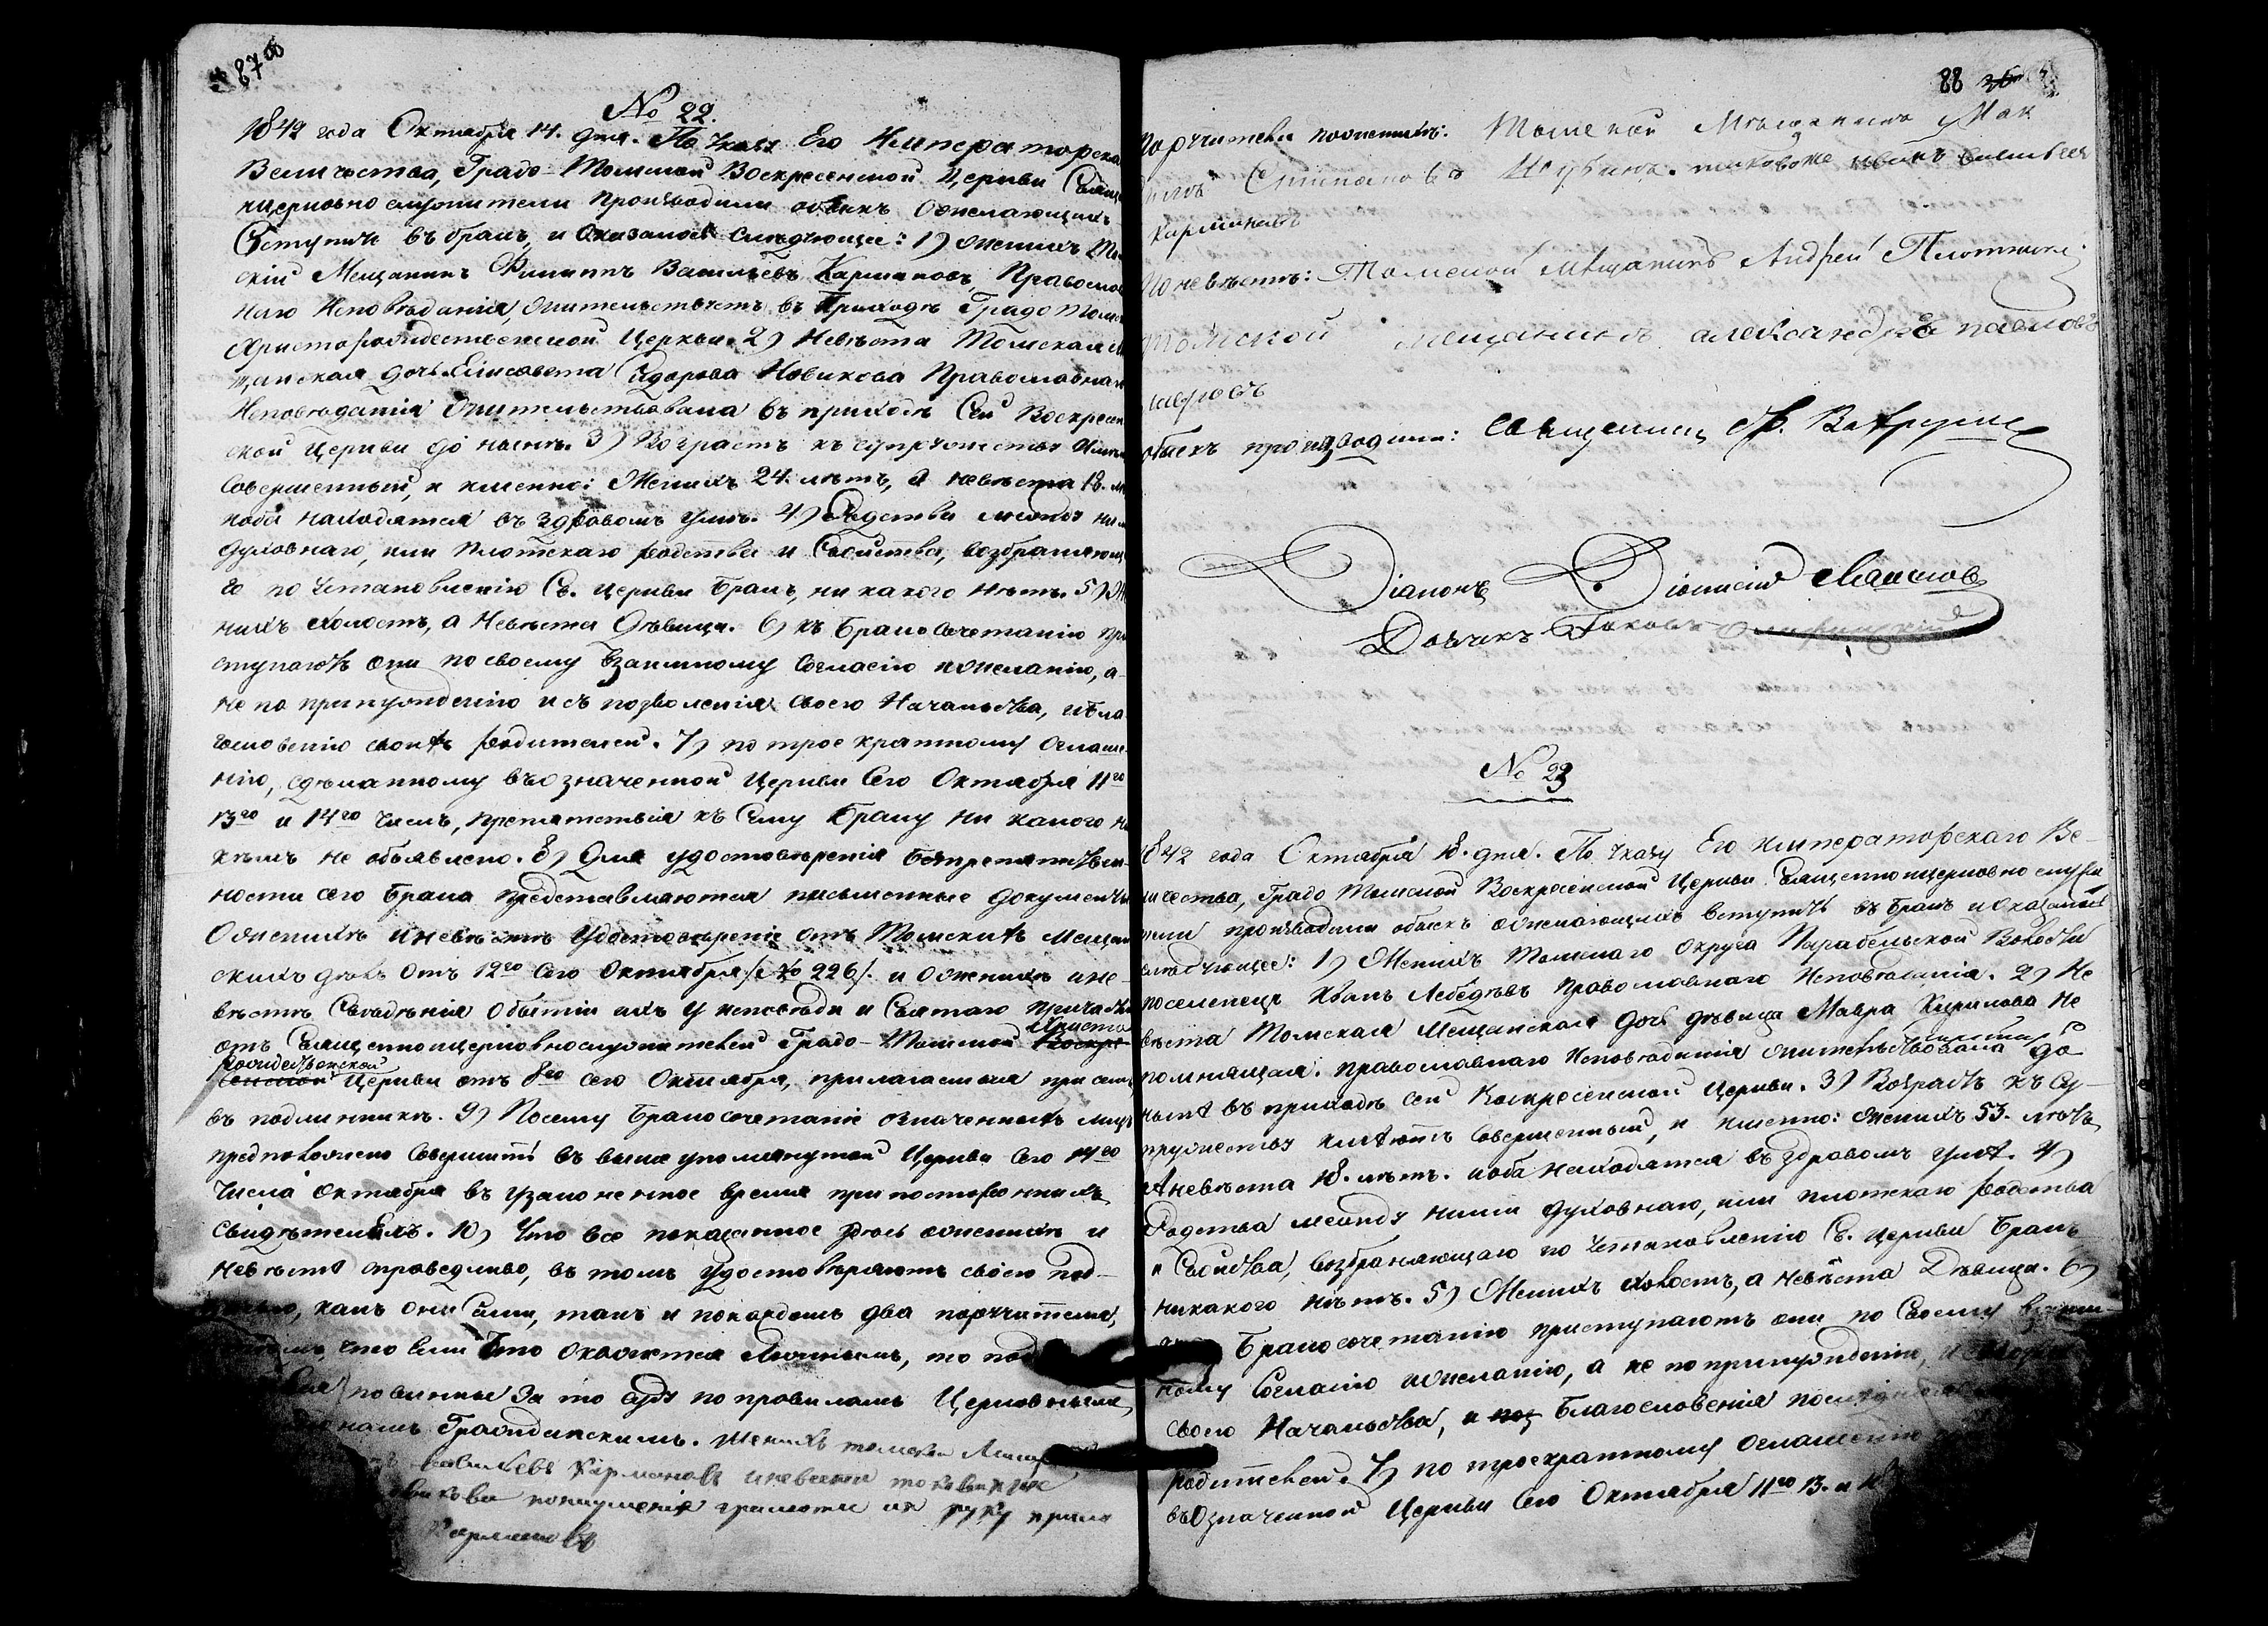 87об
№ 22.
1842 года Октября 14. дня. По указу Его Императорска
Величества, Градо-Томской Воскресенской Церкви Свящ
ноцерковно служители производили обыскъ о желающихъ
вступить въ бракъ, и оказалось слѣдующее: 1) женихъ То
скій Мещанинъ Филиппъ Васильевъ Кармановъ, Православ
наго Исповѣданія, жительствуетъ въ Приходѣ Градо Томс
Христорождественской Церкви. 2) Невѣста Томская М
щанская дочь Елисавета Сидорова Новикова Православна
Исповѣданія жительствовала въ приходѣ Сей Воскресен
ской Церкви до нынѣ. 3) Возрастъ къ супружеству имѣ
совершенный, и именно: Женихъ 24. лѣтъ, а невѣста 18. лѣ
иоба находятся въ здравомъ умѣ. 4) Родства между ни
духовнаго, или плотскаго родства и Свойства, возбраняющ
го по установленію Св. Церкви бракъ, никакого нѣтъ. 5) Ж
нихъ холостъ, а Невѣста дѣвица. 6) къ Бракосочетанію при
ступаютъ они по своему взаимному согласію ижеланію, а
не по принужденію и съ позволенія своего Начальства, ибла
гословенію своихъ родителей. 7) по троекратному оглаше
нію, сдѣланному въозначенной Церкви сего Октября 11го
13го и 14го числъ, препятствія къ сему браку ни какого н
кѣмъ не объявлено. 8) Для удостовѣренія безпрепятствен
ности сего брака представляются письменные документы
О женихѣ иневѣстѣ удостовѣреніе отъ Томскихъ Мещан
скихъ дѣлъ отъ 12го сего Октября /№ 226/. и о женихѣ ине
вѣстѣ Свѣдѣнія о бытіи ихъ у исповѣди и Святаго Причасті
Христо
отъ Священноцерковнослужителей Градо-Томской Воскре
рождественской
сенской Церкви отъ 8го сего Октября, прилагается при семъ
въ подлинникѣ. 9) Посему Бракосочетаніе означенныхъ лицъ
предположено совершить въ выше упомянутой Церкви сего 14го
числа Октября въ узаконенное время при постороннихъ
свидѣтеляхъ. 10) Что все показанное здѣсь о женихѣ и
невѣстѣ справедливо, въ томъ удостовѣряютъ своею под
какъ они сами, такъ и по каждомъ два поручителя,
что если что окажется ложнымъ, то под
повинны за то суду по правиламъ Церковнымъ,
Гражданскимъ. Женихъ томски Мещ
василевъ Кармановъ иневеста
новикова понеумения грамоти их руку прило
Карманов
88
Поручители по женихѣ: Томской Мѣщанинъ Мак
Степановъ тоже иванъ василев
Кармановъ
По невѣстѣ: Томской мѣщанинъ Андрей Плотник
томской мещанинъ александръ павловъ
обыскъ производили: священник Ф. Вавру
Діаконъ Діонисій
Дьячекъ Іаковъ
№ 23
1842 года Октября 18. дня. По указу Его Императорскаго Ве-
личества, Градо Томской Воскресенской Церкви Священноцерковно служи
тели производили обыскъ о желающихъ вступить въ бракъ и оказалось
слѣдующее: 1) Женихъ Томскаго округа Парабельской Волости
поселенецъ Иванъ Лебедевъ православнаго Исповѣданія. 2) Не
вѣста Томская Мещанская дочь дѣвица Мавра Кирилова Не
помнящая. православнаго Исповѣданія жительствовала до
нынѣ въ приходѣ сей Воскресенской Церкви. 3) Возрастъ къ Су-
пружеству имѣютъ совершенный, и именно: женихъ 53. лѣтъ
Аневѣста 18. лѣтъ. иоба находятся въ здравомъ умѣ. 4)
Родства между ними духовнаго, или плотскаго родства
и Свойства, возбраняющаго по установленію Св. Церкви Бракъ
никакого нѣтъ. 5) Женихъ холостъ, а невѣста Дѣвица. 6)
Бракосочетанію приступаютъ они по Своему взаим
ному Согласію ижеланію, а не по принужденію, и
своего Начальства, и поз Благословенія
родителей. 7) по троекратному оглашенію
въозначенной Церкви сего Октября 11го 13. и